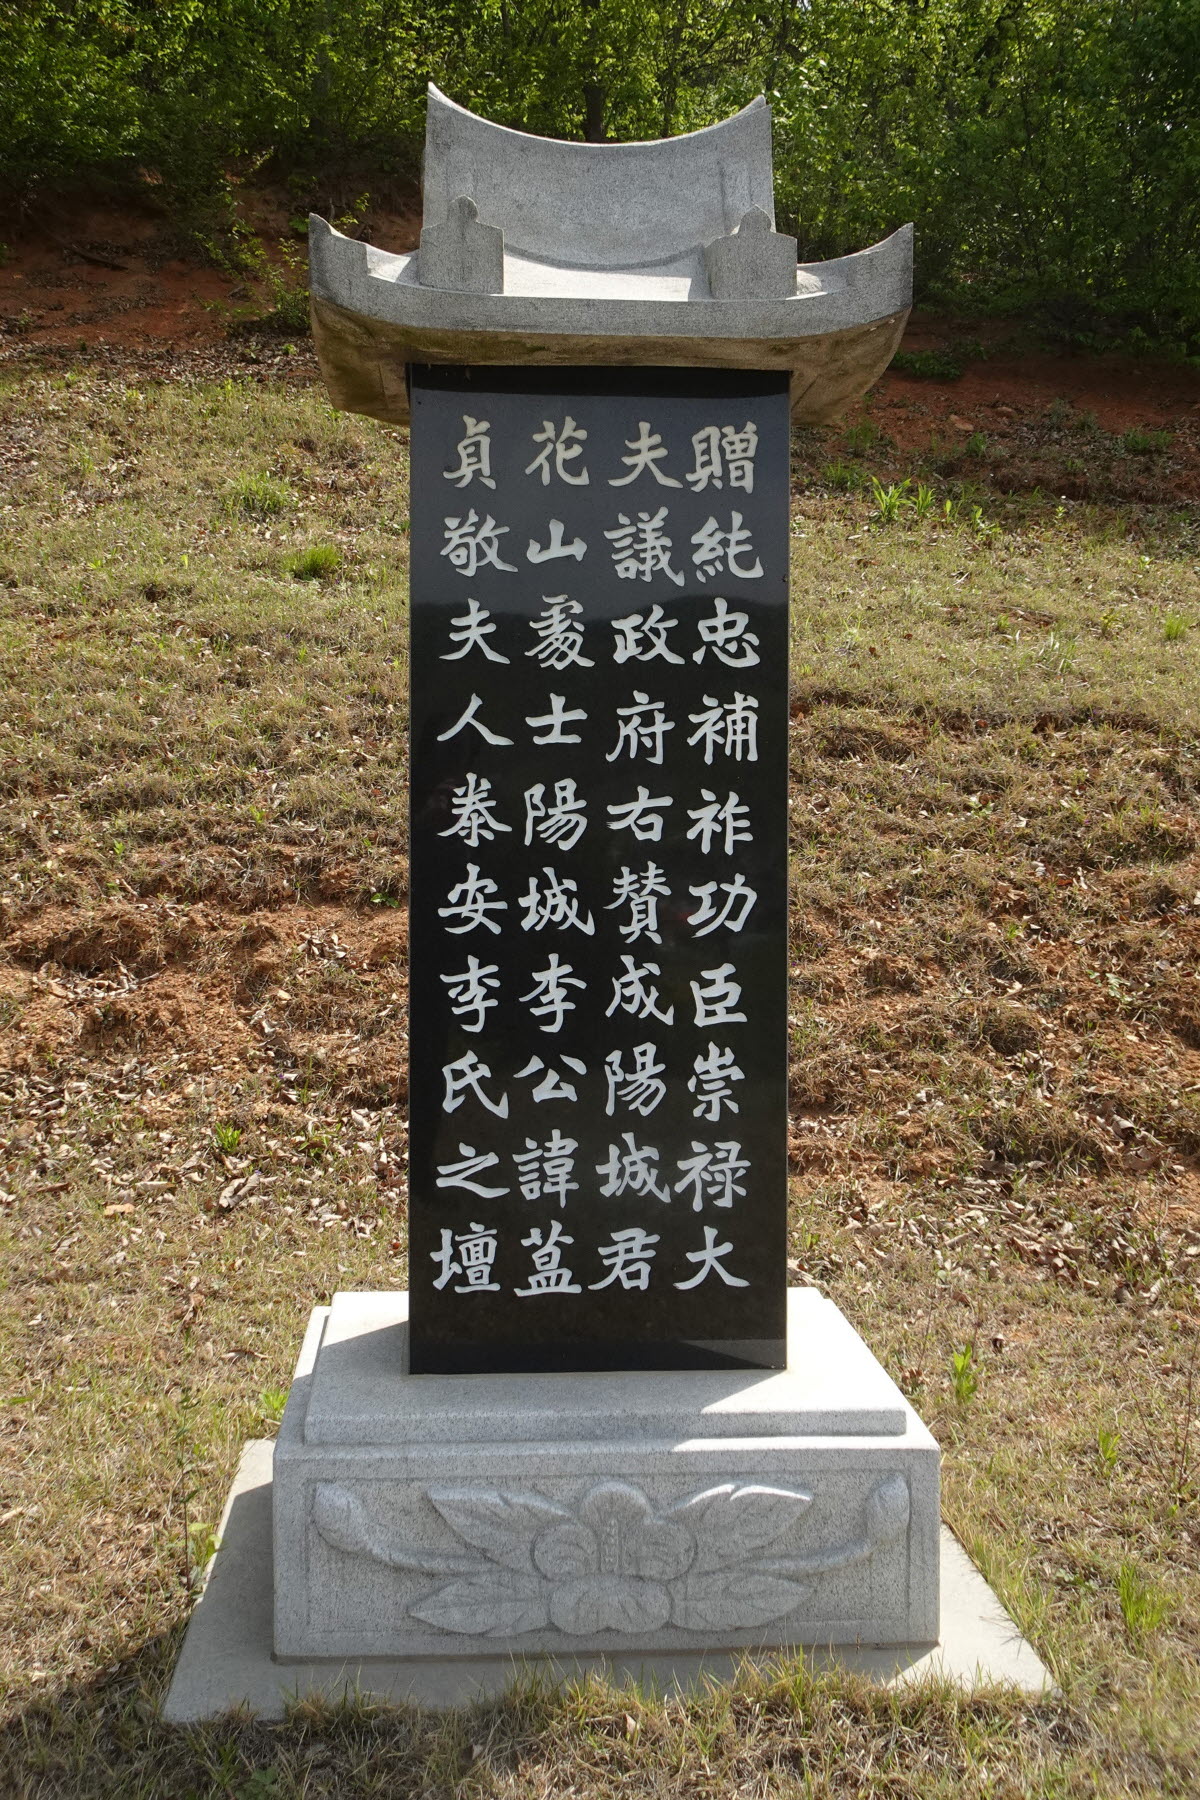 贈純忠補祚功臣崇禄大
夫議政府右賛成陽城君
花山處士陽城李公諱蒕
貞敬夫人泰安李氏之壇